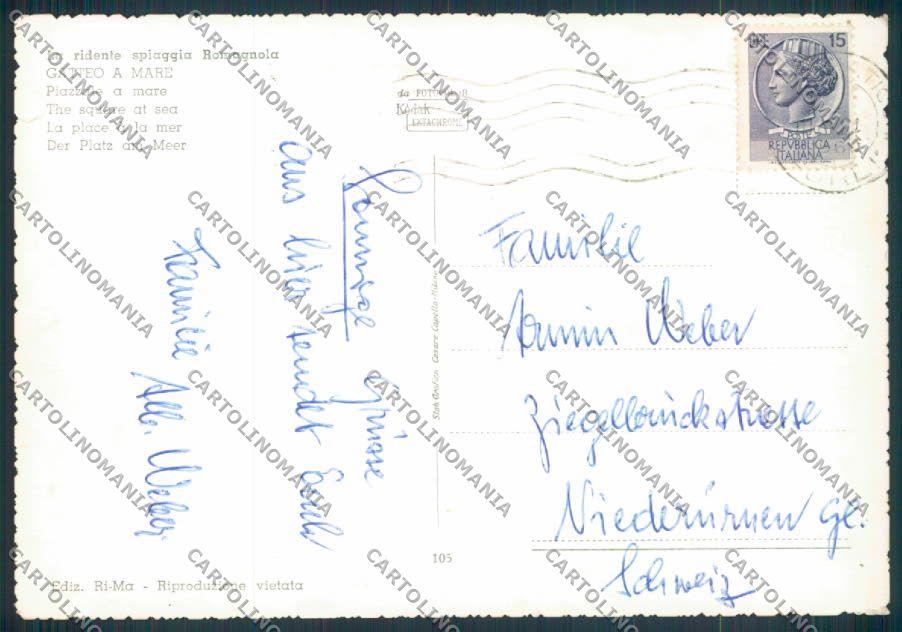 La ridente spiaggia Romagnola
GATTEO A MARE
Piazzale a mare
The square at sea
La place a la mer
Der Platz am Meer
da FOTOCOLOR
Kodak
EKTACHROME
15
POSTE
REPVBBLICA
ITALIANA
Sonnige Grüsse
aus hier sendet Euch
Familie Alb. Weber
Stab. Grafico Cesare Capello-Milano
Familie
Armin Weber
Ziegelbrückstrasse
Niederurnen Gl.
Schweiz
105
Ediz. Ri-Ma - Riproduzione vietata
CARTOLINOMANIA